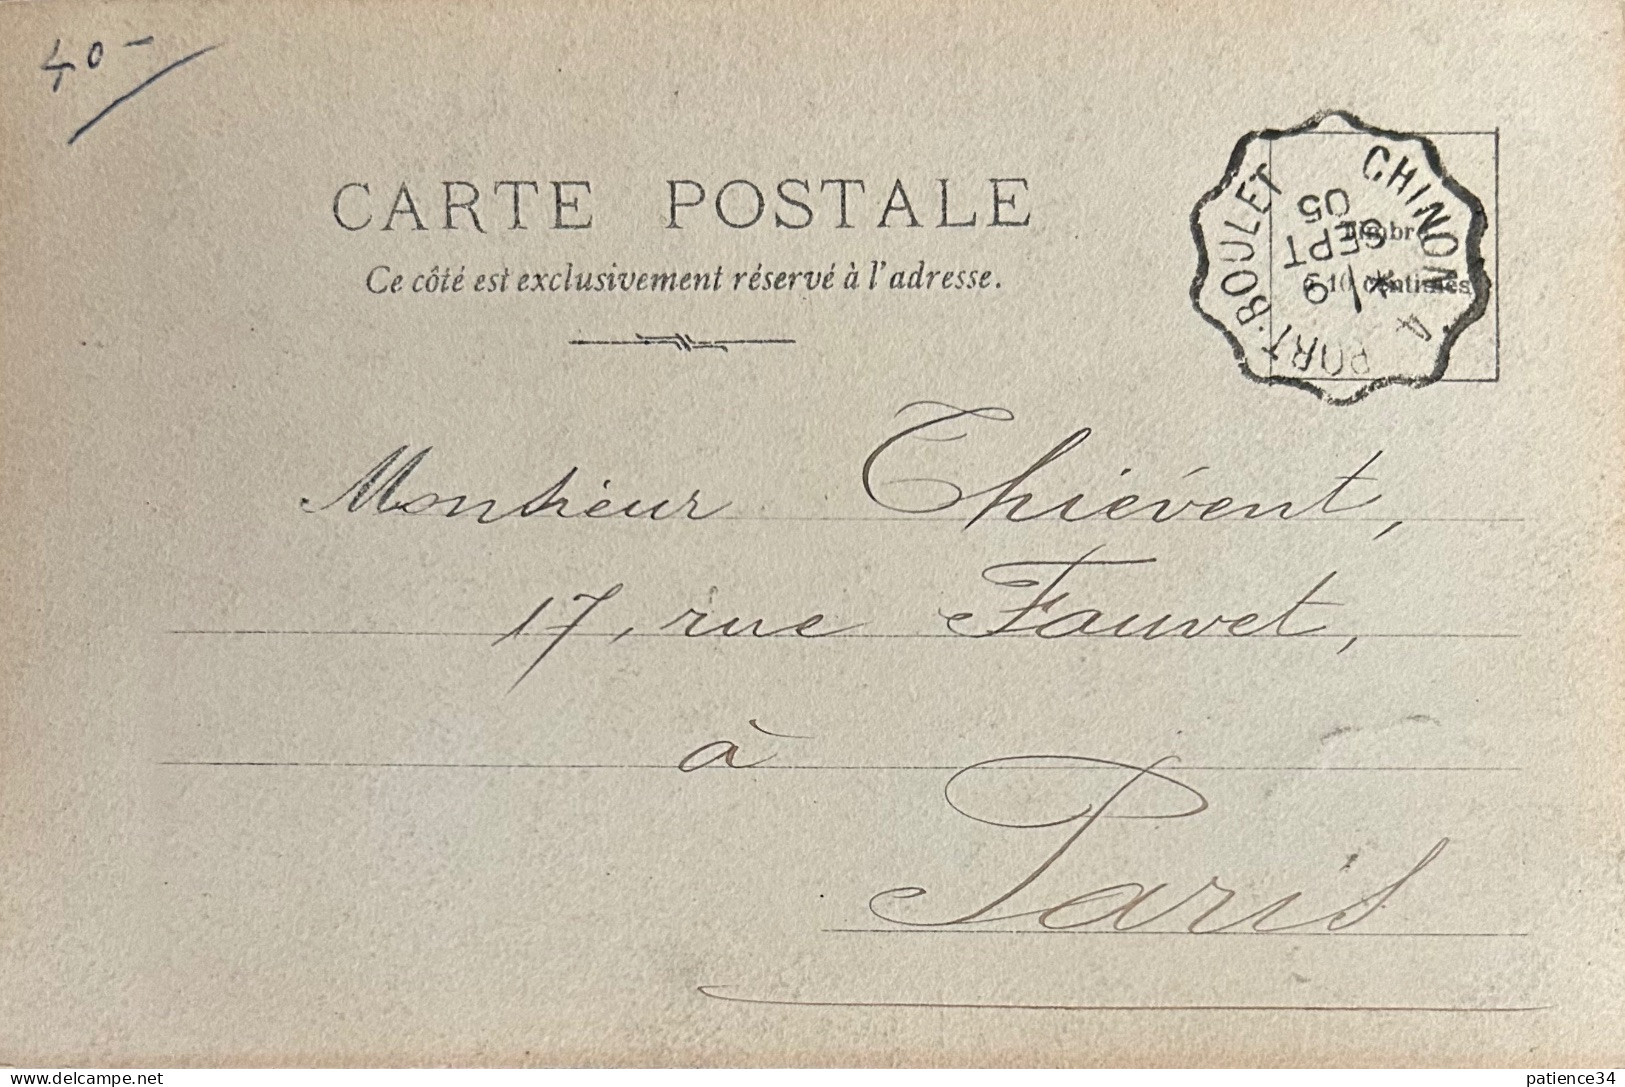 40-
CARTE POSTALE
Ce côté est exclusivement réservé à l'adresse.
CHINON A PORT-BOULET
9
SEPT
05
Timbre
à 10 centimes
Monsieur Thiévent,
17, rue Fauvet,
à
Paris
www.delcampe.net
patience34